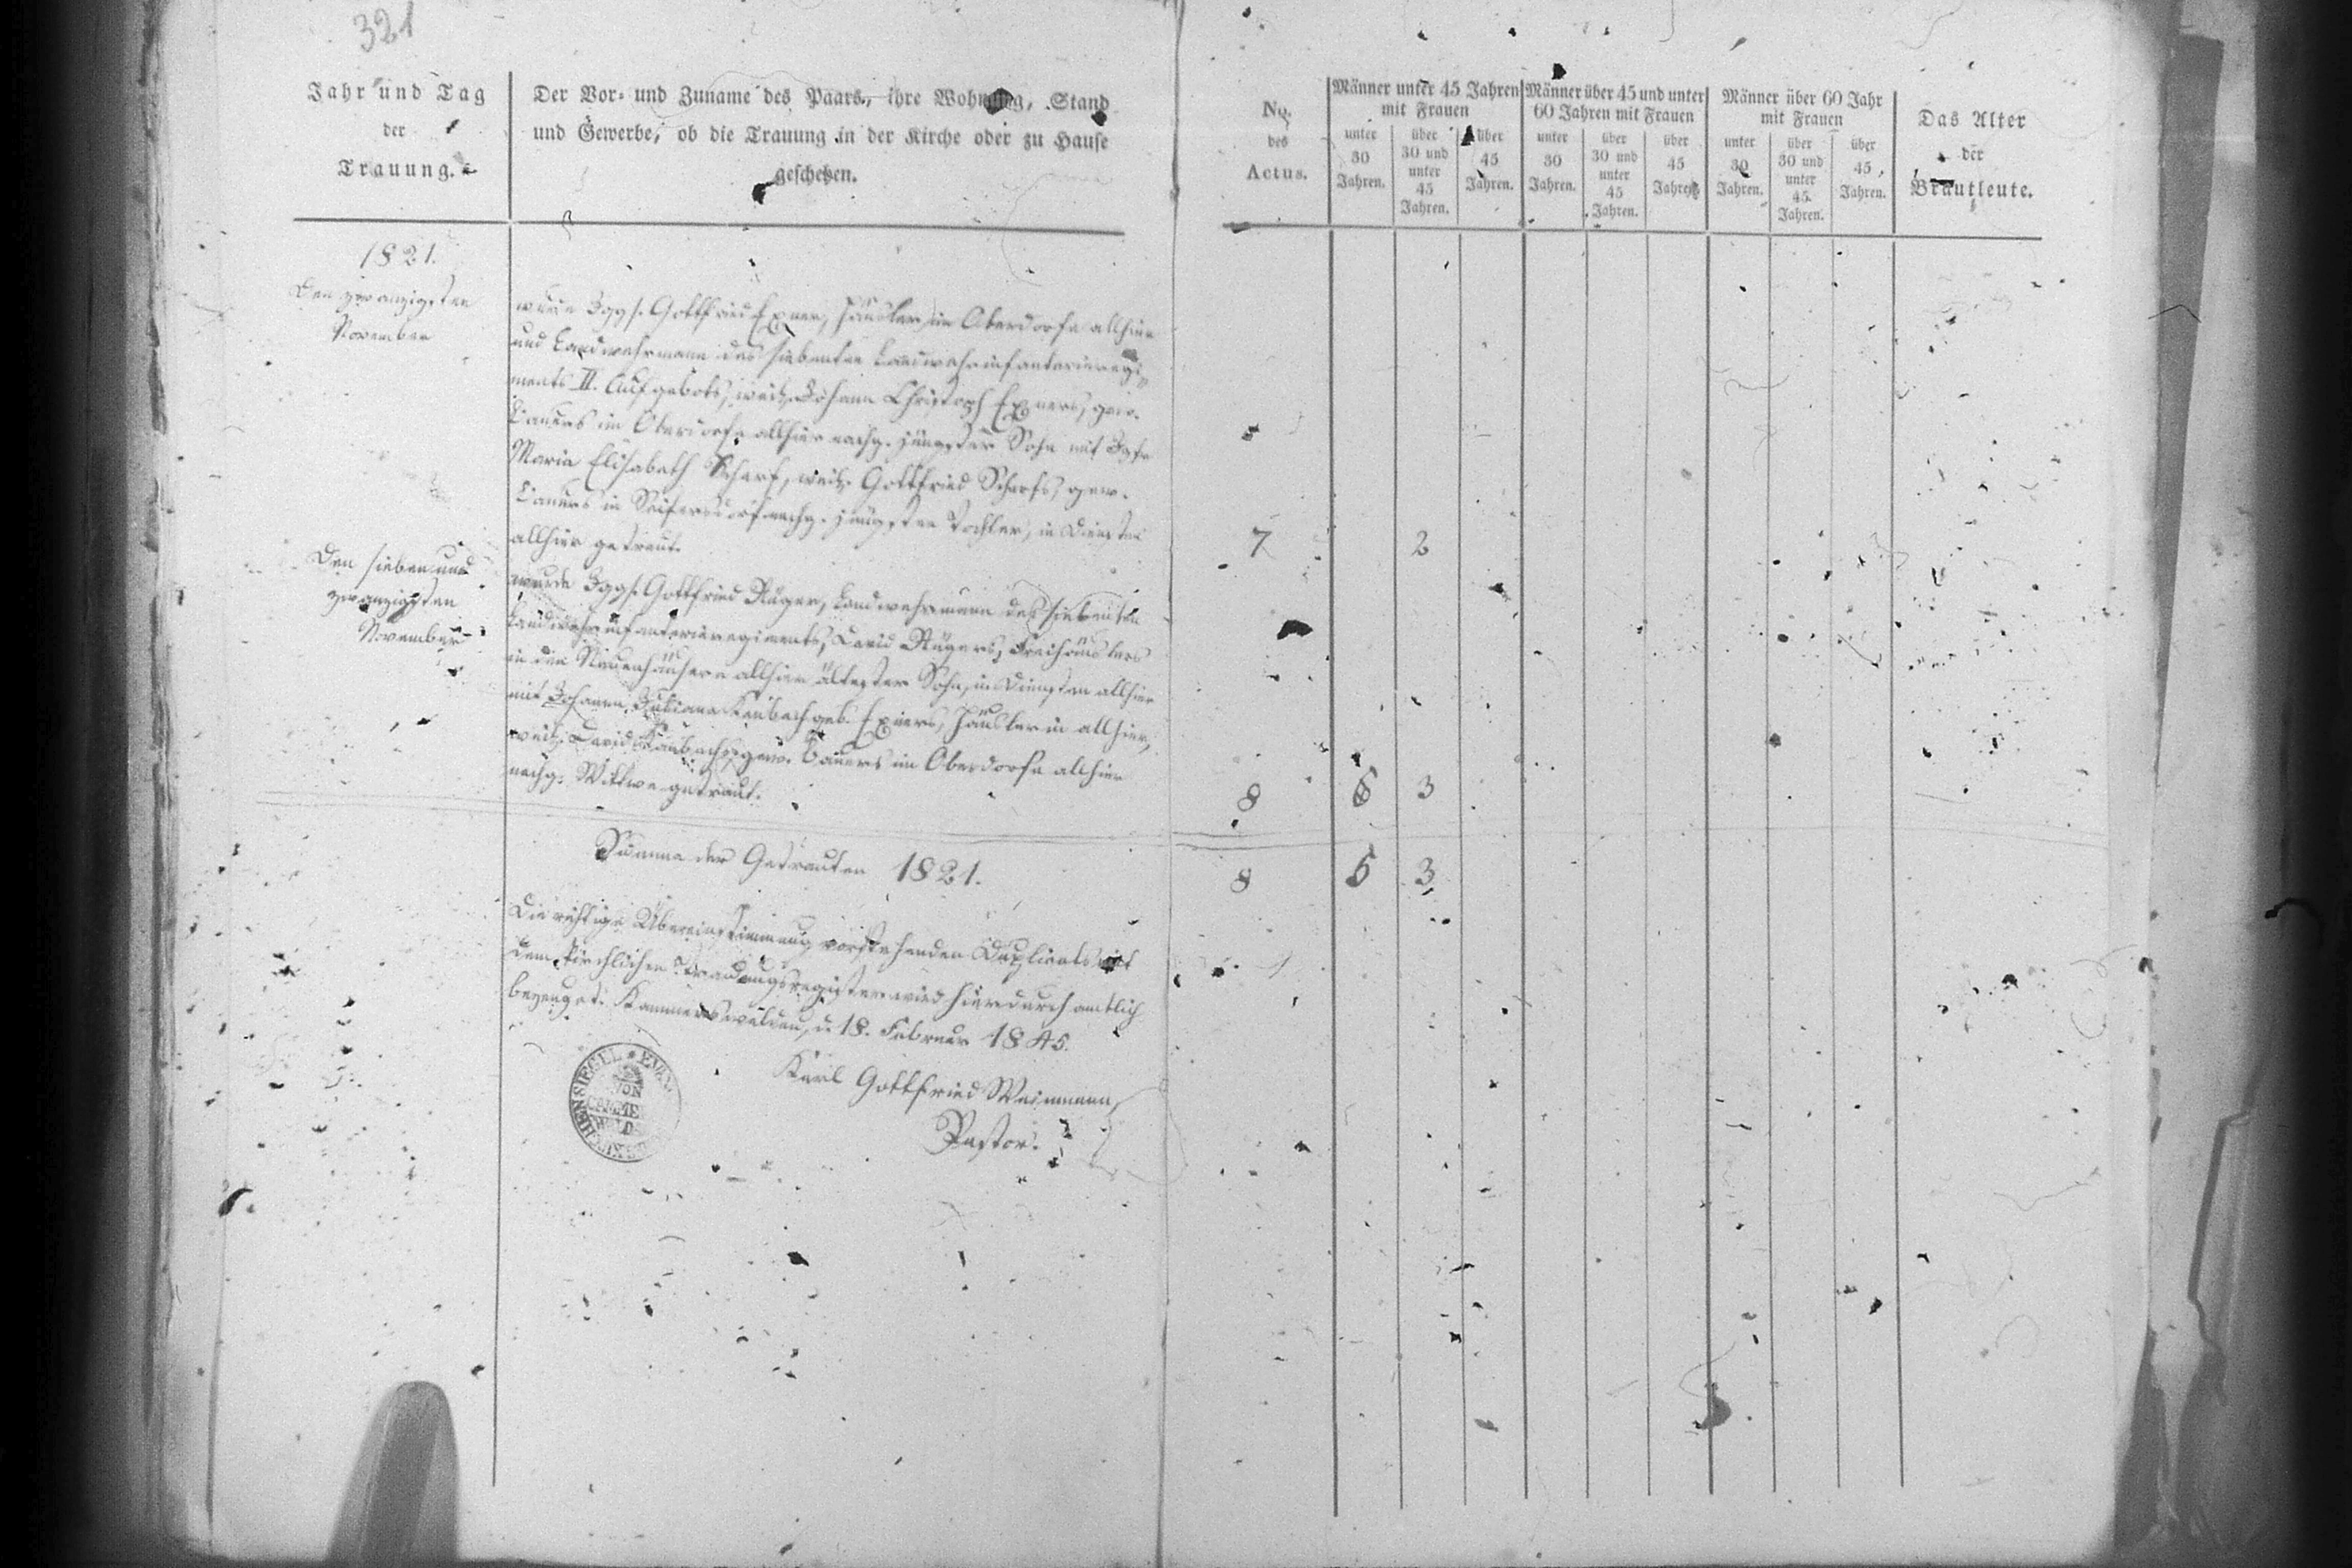 321
Jahr und Tag
der
Trauung.
Der Vor- und Zuname des Paars, ihre Wohnung, Stand
und Gewerbe, ob die Trauung in der Kirche oder zu Hause
geschehen.
No.
des
Actus.
Männer unter 45 Jahren
mit Frauen
unter
30
Jahren.
über
30 und
unter
45
Jahren.
über
45
Jahren.
Männer über 45 und unter
60 Jahren mit Frauen
unter
30
Jahren.
über
30 und
unter
45
Jahren.
über
45
Jahren.
Männer über 60 Jahr
mit Frauen
unter
30
Jahren.
über
30 und
unter
45
Jahren.
über
45
Jahren.
Das Alter
der
Brautleute.
1821.
Den zwanzigsten
November
wurde Jggs. Gottfried Exner, Häusler im Oberdorfe allhier
und Landwehrmann des siebenten Landwehrinfanterieregi-
ments II. Aufgebots, weil. Johann Christoph Exners, gew.
Bauers im Oberdorfe allhier nachg. jüngster Sohn mit Jgfr
Maria Elisabeth Scharf, weil. Gottfried Scharfs, gew.
Bauers in Seifersdorf nachg. jüngsten Tochter, in Diensten
allhier getraut.
7 2
Den sieben und
zwanzigsten
November
wurde Jggs. Gottfried Rüger, Landwehrmann des siebenten
Landwehrinfanterieregiments, David Rügers, Freihäuslers
in den Niederhäusern allhier ältester Sohn, in Diensten allhier
mit Johann Juliana geb. Exners, Häuslerin allhier,
weil. David gew. Bauers im Oberdorfe allhier
nachg. Wittwe getraut.
8 3
Summa der Getrauten 1821.
8 5 3
Die richtige Übereinstimmung vorstehenden Duplicats mit
dem kirchlichen Trauungsregister wird hierdurch amtlich
bezeuget. Kammerswaldau, d. 18. Februar 1845.
Karl Gottfried Weinmann,
Pastor.